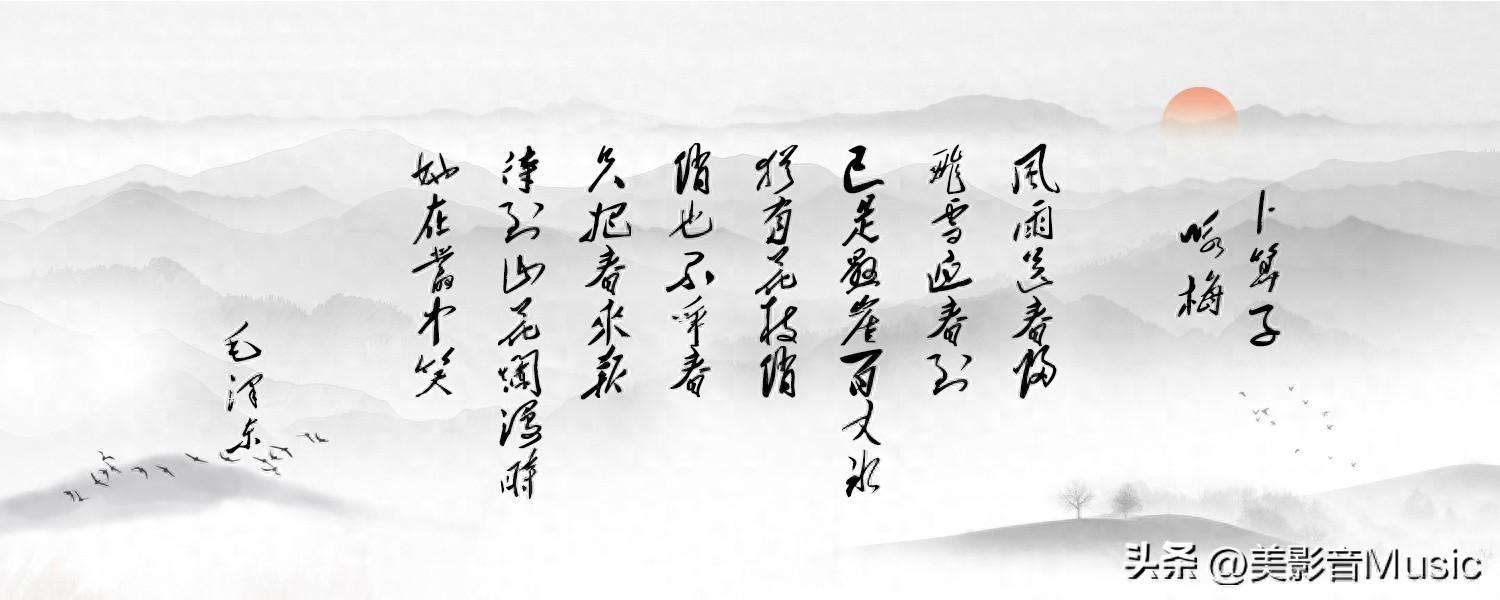 卜算子
咏梅
風雨送春歸
飛雪迎春到
已是懸崖百丈冰
猶有花枝俏
俏也不爭春
只把春來報
待到山花爛漫時
她在叢中笑
毛澤東
头条 @美影音Music